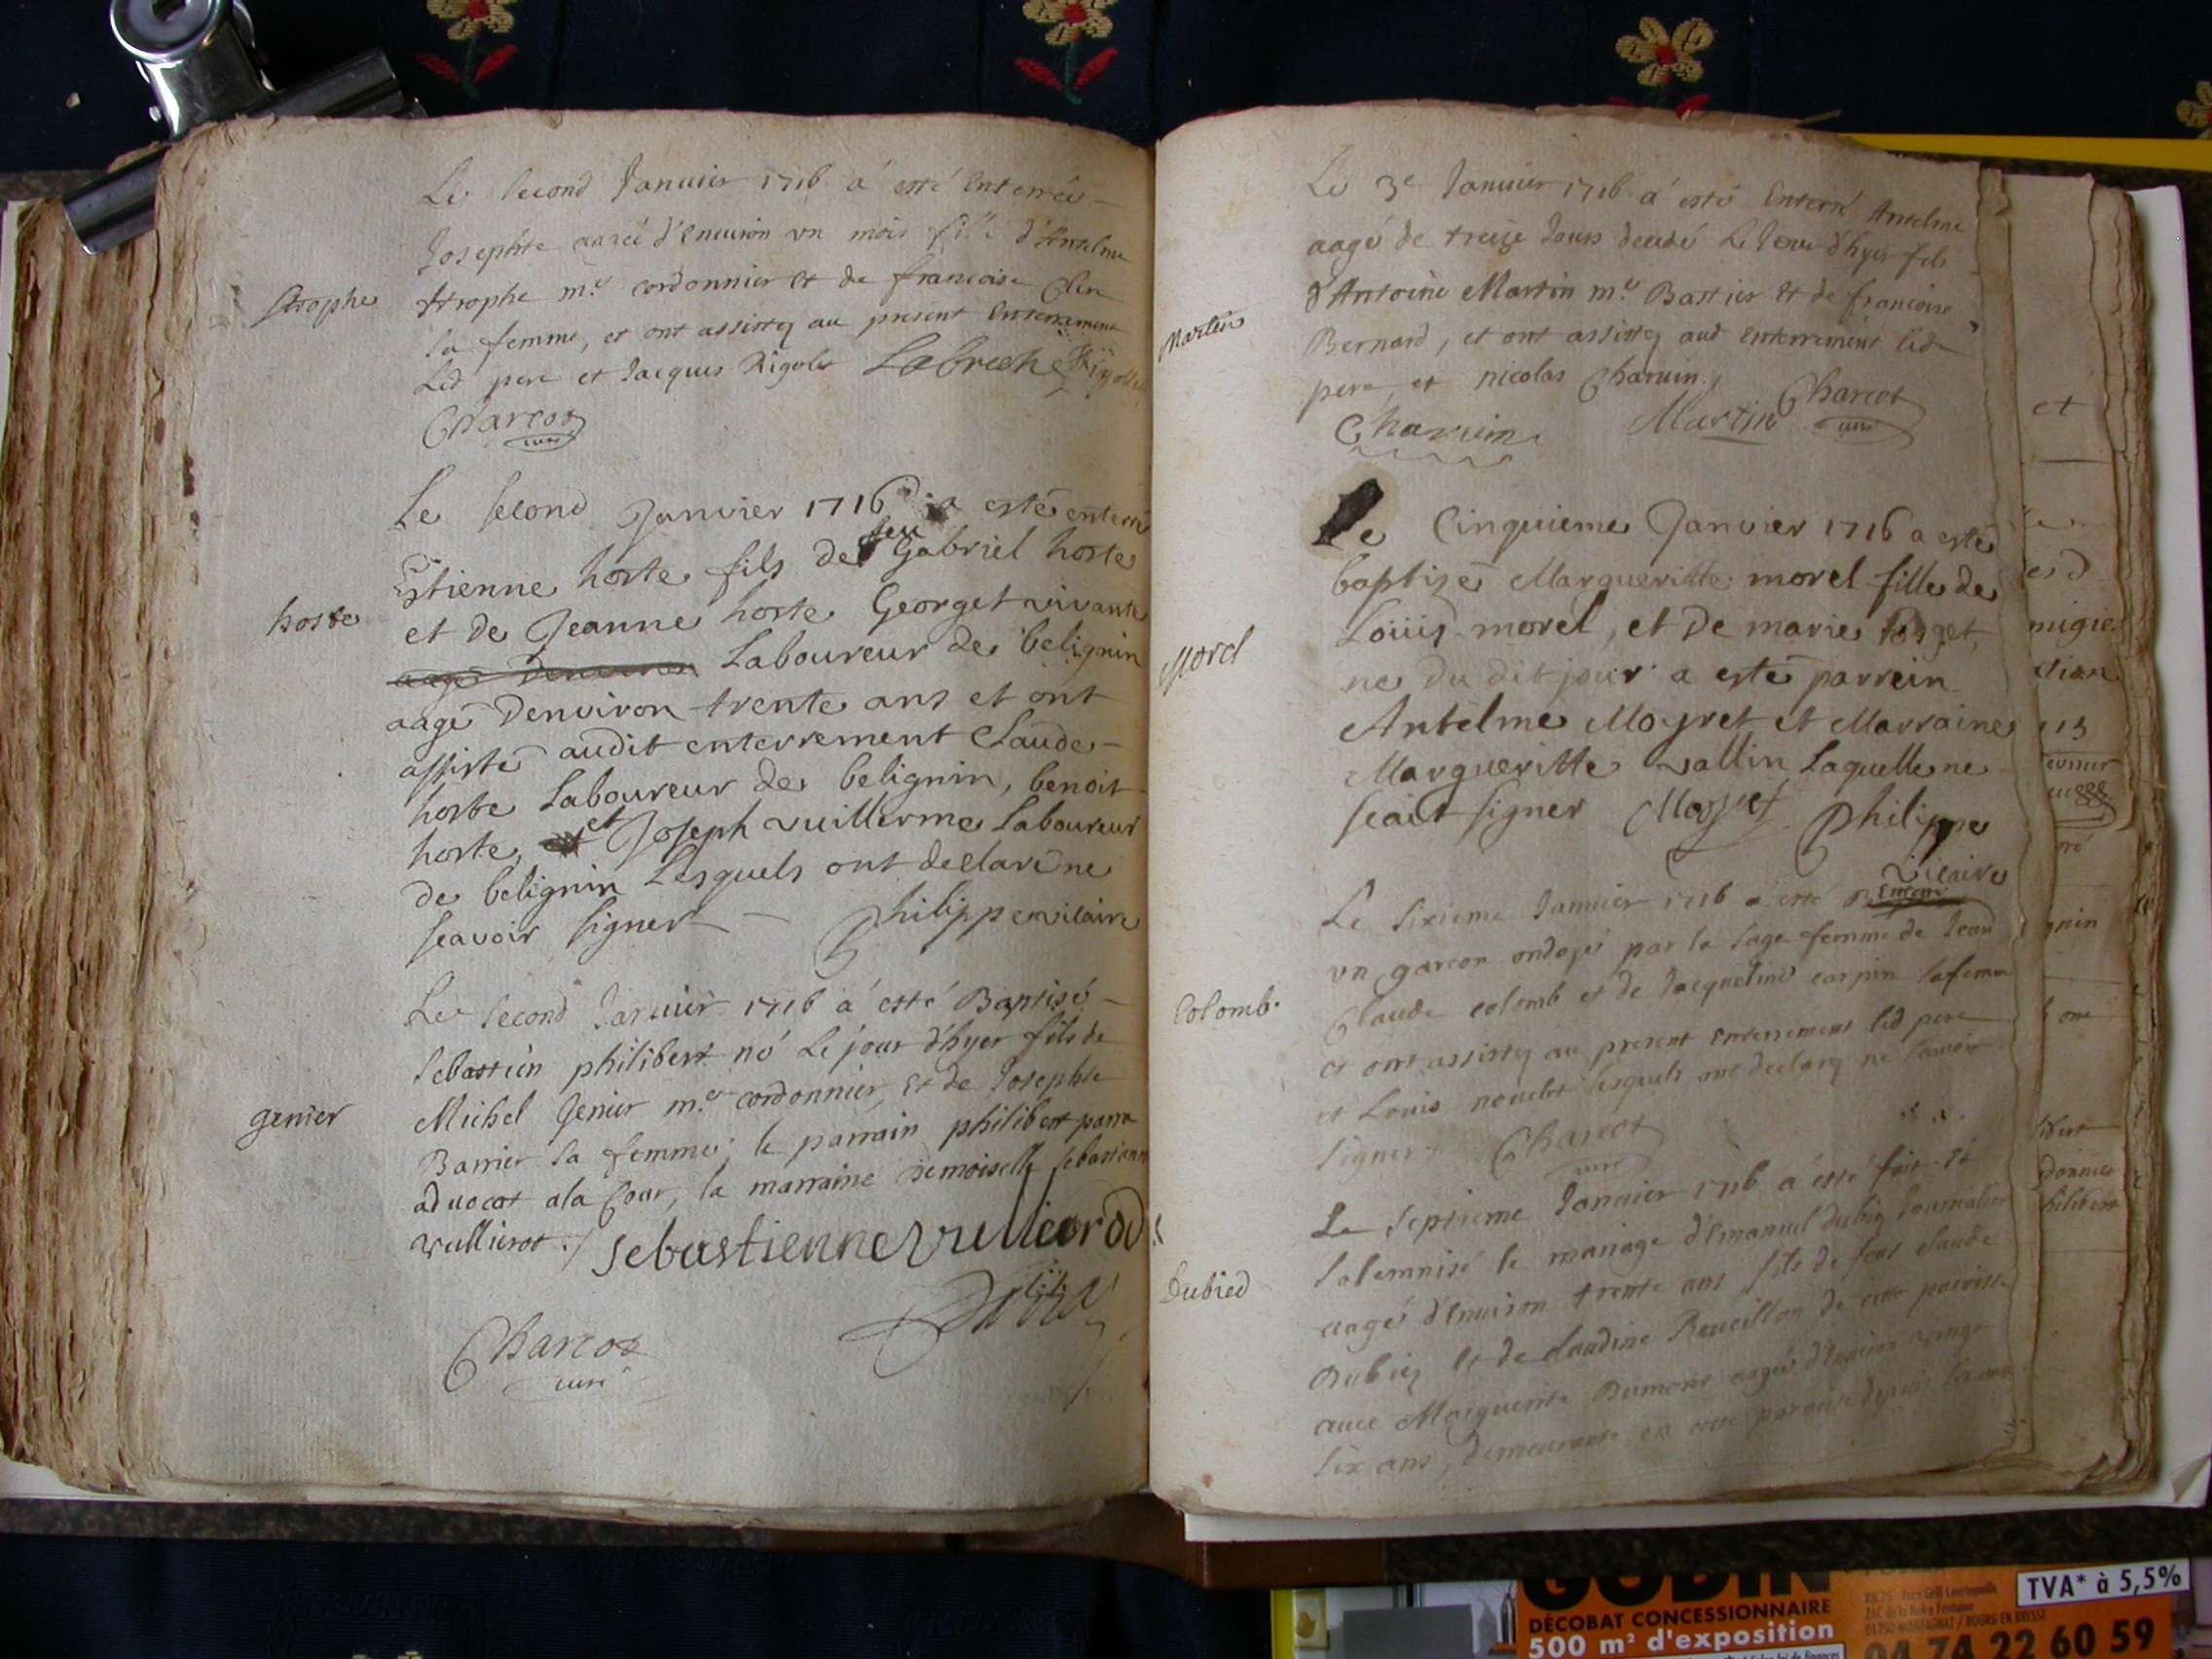 Le second Janvier 1716 a esté enterrée
Josephte aagée d'environ un mois fille d'Antelme
Strophe
Strophe m.e cordonnier et de francoise
sa femme, et ont assistez au present enterrement
Led pere et Jacques Rigolet Labreche Rigollet
Charcot
curé
Le second Janvier 1716 a esté enterré
Estienne hoste fils de feu Gabriel hoste
hoste
et de Jeanne hoste Georget vivante
aagé denviron Laboureur de belignin
aagé denviron trente ans et ont
assisté audit enterrement Claude
hoste Laboureur de belignin, benoit
hoste, et Joseph vuillerme Laboureur
de belignin Lesquels ont declaré ne
scavoir signer Philippe vicaire
Le second Janvier 1716 a esté Baptisé
Sebastien philibert né Le jour d'hyer fils de
genier
Michel Jenier m.e cordonnier, et de Josephte
Barrier sa femme; le parrain philibert parra
advocat ala Cour, la marraine demoiselle sebastienne
vullierot ./ sebastienne vullierod
Charcot
curé
Le 3e Janvier 1716 a esté Enterré Antelme
aagé de treize Jours decedé Le Jour d'hyer fils
Martin
d'Antoine Martin m.e Bastier et de francoise
Bernard, et ont assistez aud enterrement led
pere et nicolas Charvin ./
Charvin Martin Charcot
curé
Le Cinquieme Janvier 1716 a esté
baptisé Margueritte morel fille de
Morel
Loüis morel, et de marie
ne du dit jour a esté parrein
Antelme Moyret et Marraine
Margueritte vallin Laquelle ne
scait signer Moyret Philippe
vicaire
Le sixieme Janvier 1716 a esté Enterré
un garcon ondoyé par la sage femme de Jean
Colomb.
Claude colomb et de Jacqueline carpin sa femme
et ont assistez au present enterrement led pere
et Louis nouclet lesquels ont declarez ne scavoir
signer. Charcot
curé
Le septieme Janvier 1716 a esté fait et
solemnisé le mariage d'Emanuel dubiez Journalier
Dubied
aagé d'environ trente ans fils de feus claude
Dubiez et de claudine Reveillon de cette paroisse
avec Marguerite Dumont aagée d'environ vingt
six ans, demeurante en cette paroisse depuis
et
migie
gnin
GODIN
DÉCOBAT CONCESSIONNAIRE
500 m² d'exposition
TVA* à 5,5%
04 74 22 60 59